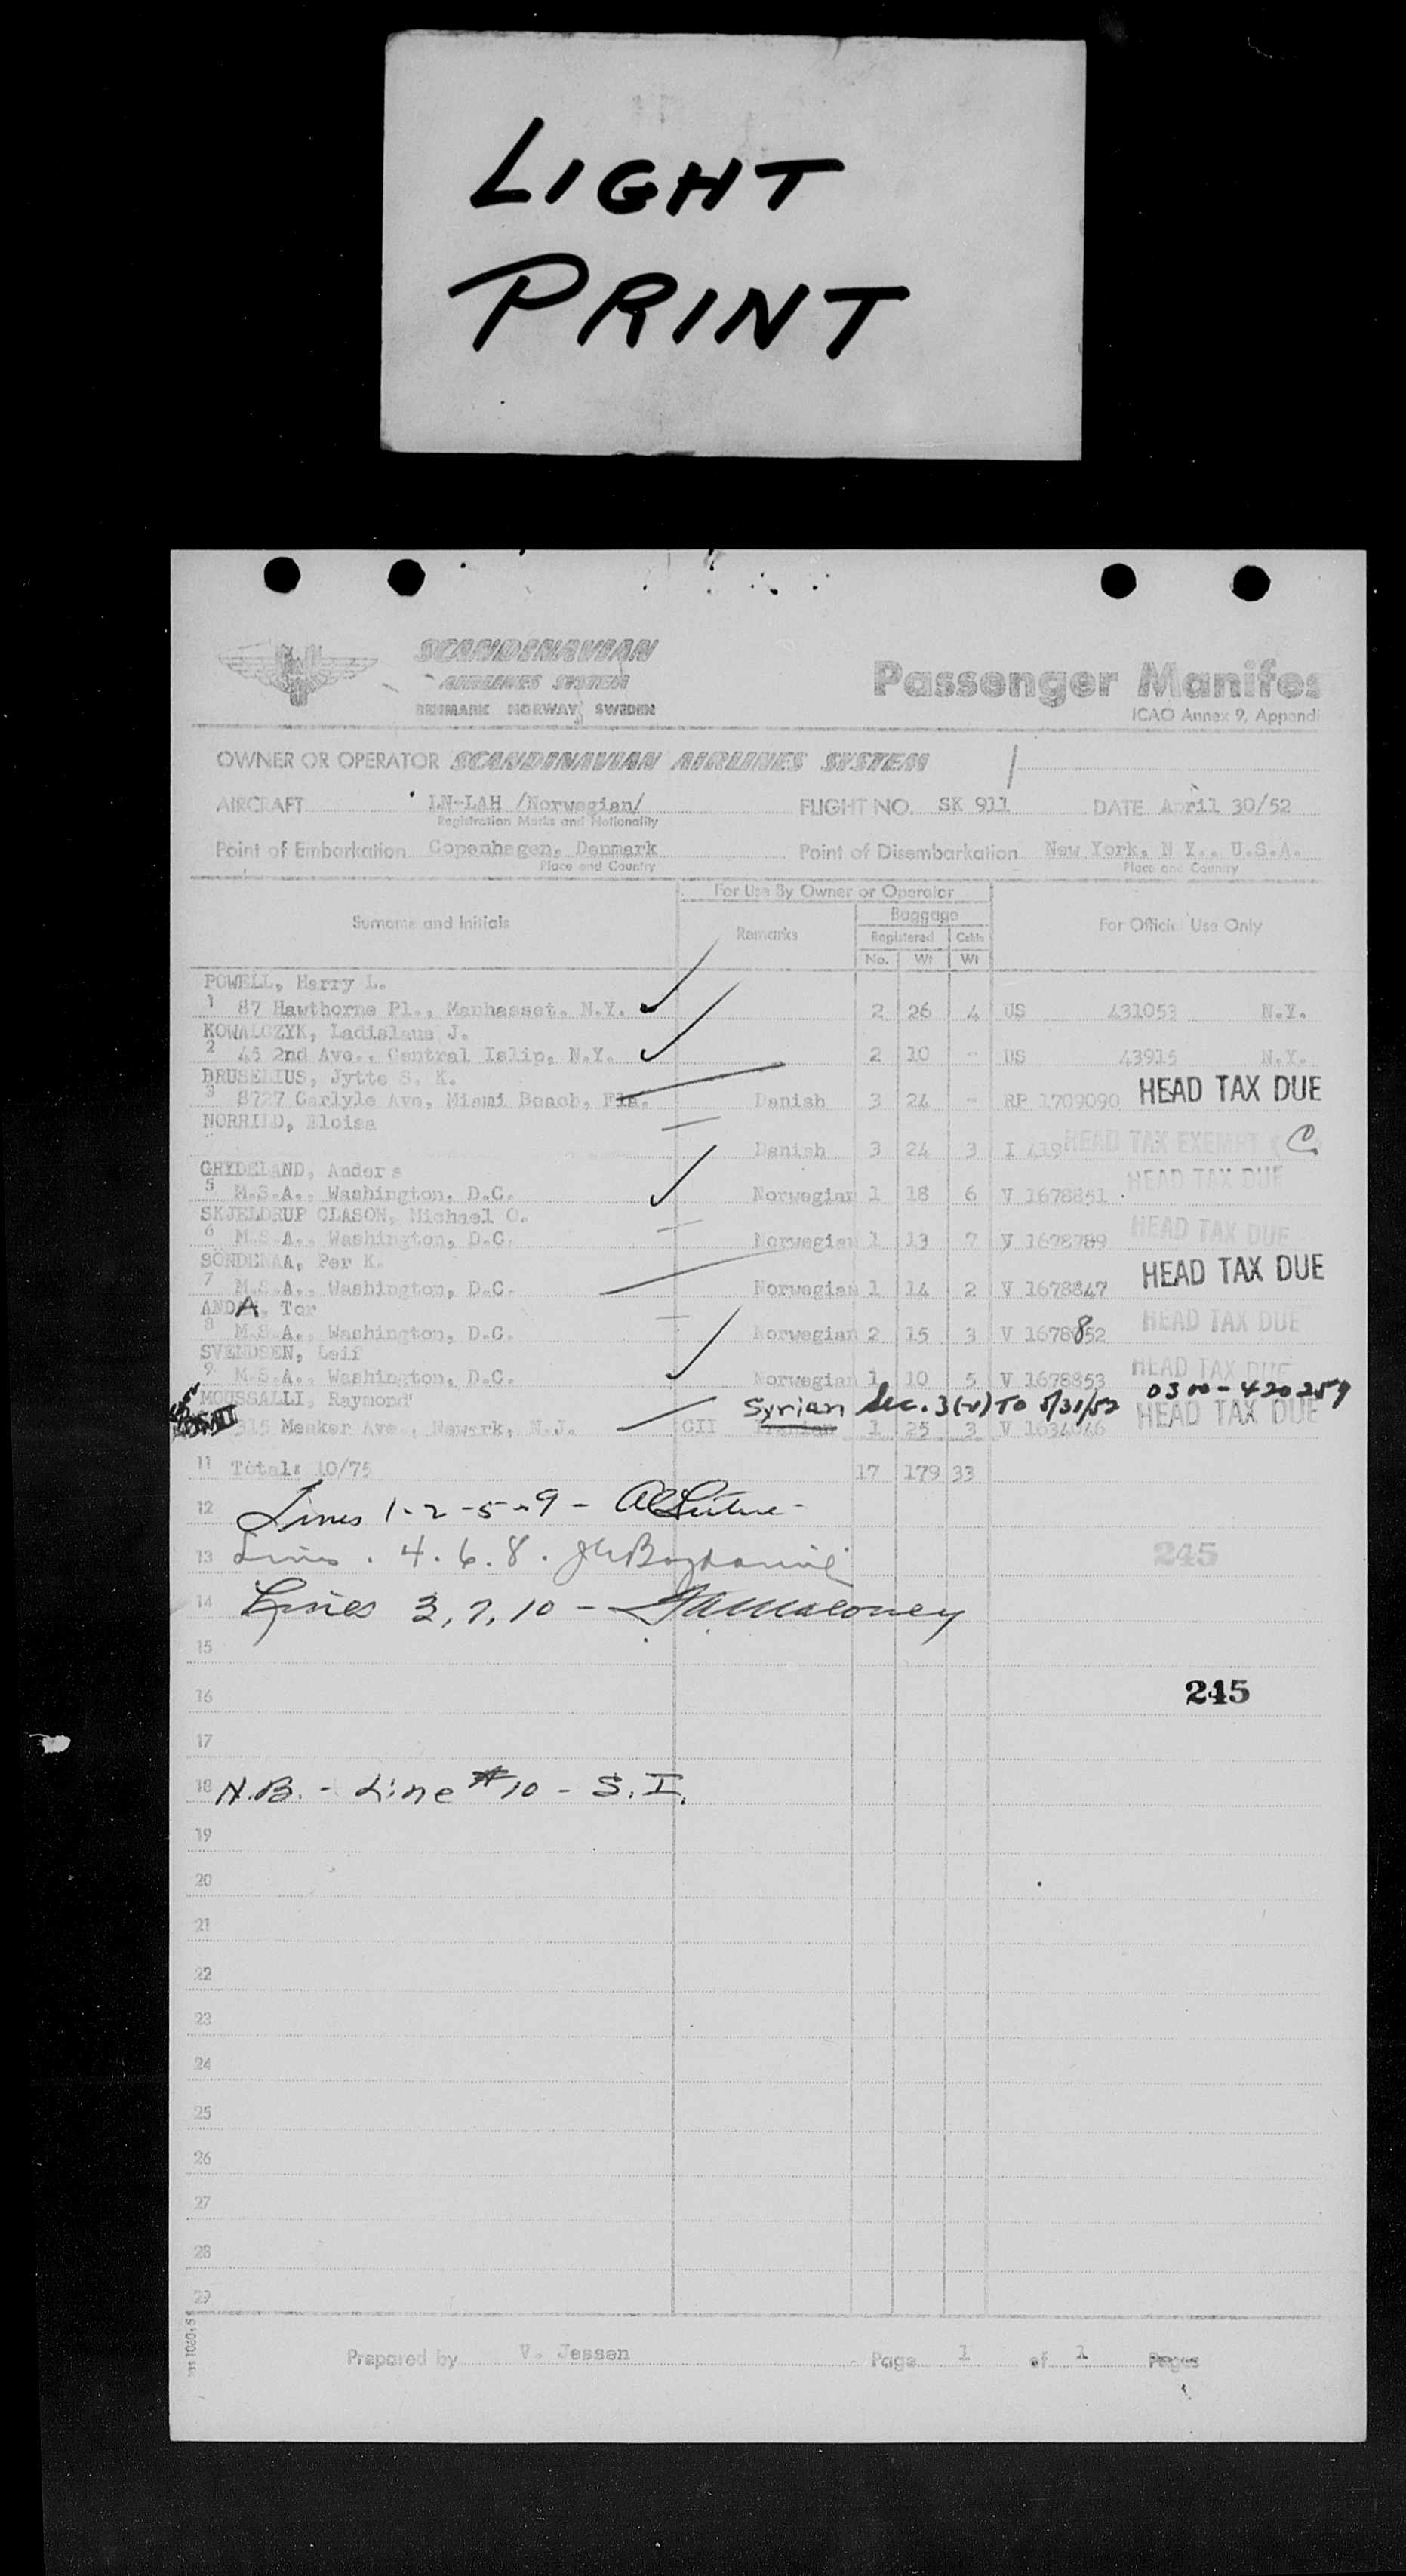 LIGHT
PRINT
SCANDINAVIAN
AIRLINES SYSTEM
DENMARK NORWAY SWEDEN
Passenger Manifes
ICAO Annex 9, Appendi
OWNER OR OPERATOR SCANDINAVIAN AIRLINES SYSTEM
AIRCRAFT LN-LAH /Norwegian/ FLIGHT NO. SK 911 DATE April 30/52
Registration Marks and Nationality
Point of Embarkation Copenhagen, Denmark Point of Disembarkation New York, N Y., U.S.A.
Place and Country Place and Country
For Use By Owner or Operator
Surname and Initials Remarks Baggage For Official Use Only
Registered Cabin
No. Wt Wt
POWELL, Harry L.
1 87 Hawthorne Pl., Manhasset, N.Y. 2 26 4 US 431053 N.Y.
KOWALCZYK, Ladislaus J.
2 45 2nd Ave., Central Islip, N.Y. 2 10 - US 43915 N.Y.
BRUSELIUS, Jytte S. K.
3 8727 Carlyle Ave, Miami Beach, Fla. Danish 3 24 - RP 1709090 HEAD TAX DUE
NORRILD, Eloisa
Danish 3 24 3 I HEAD TAX EXEMPT C
GRYDELAND, Anders
5 M.S.A., Washington, D.C. Norwegian 1 18 6 V 1678851 HEAD TAX DUE
SKJELDRUP CLASON, Michael O.
6 M.S.A., Washington, D.C. Norwegian 1 13 7 V 1678789 HEAD TAX DUE
SÖNDENAA, Per K.
7 M.S.A., Washington, D.C. Norwegian 1 14 2 V 1678847 HEAD TAX DUE
ANDA, Tor
8 M.S.A., Washington, D.C. Norwegian 2 15 3 V 1678852 HEAD TAX DUE
SVENDSEN, Leif
9 M.S.A., Washington, D.C. Norwegian 1 10 5 V 1678853 HEAD TAX DUE
MOUSSALLI, Raymond Syrian Sec. 3(2) TO 5/31/52 0300-420257
315 Meeker Ave., Newark, N.J. CII Iranian 1 25 3 V 1634046 HEAD TAX DUE
11 Total: 10/75 17 179 33
12 Lines 1-2-5-9 -
13 Lines . 4. 6. 8. 245
14 Lines 3, 7, 10 - Maloney
15
16 245
17
18 N.B. - Line #10 - S.I.
19
20
21
22
23
24
25
26
27
28
29
Prepared by V. Jessen Page 1 of 1 Pages